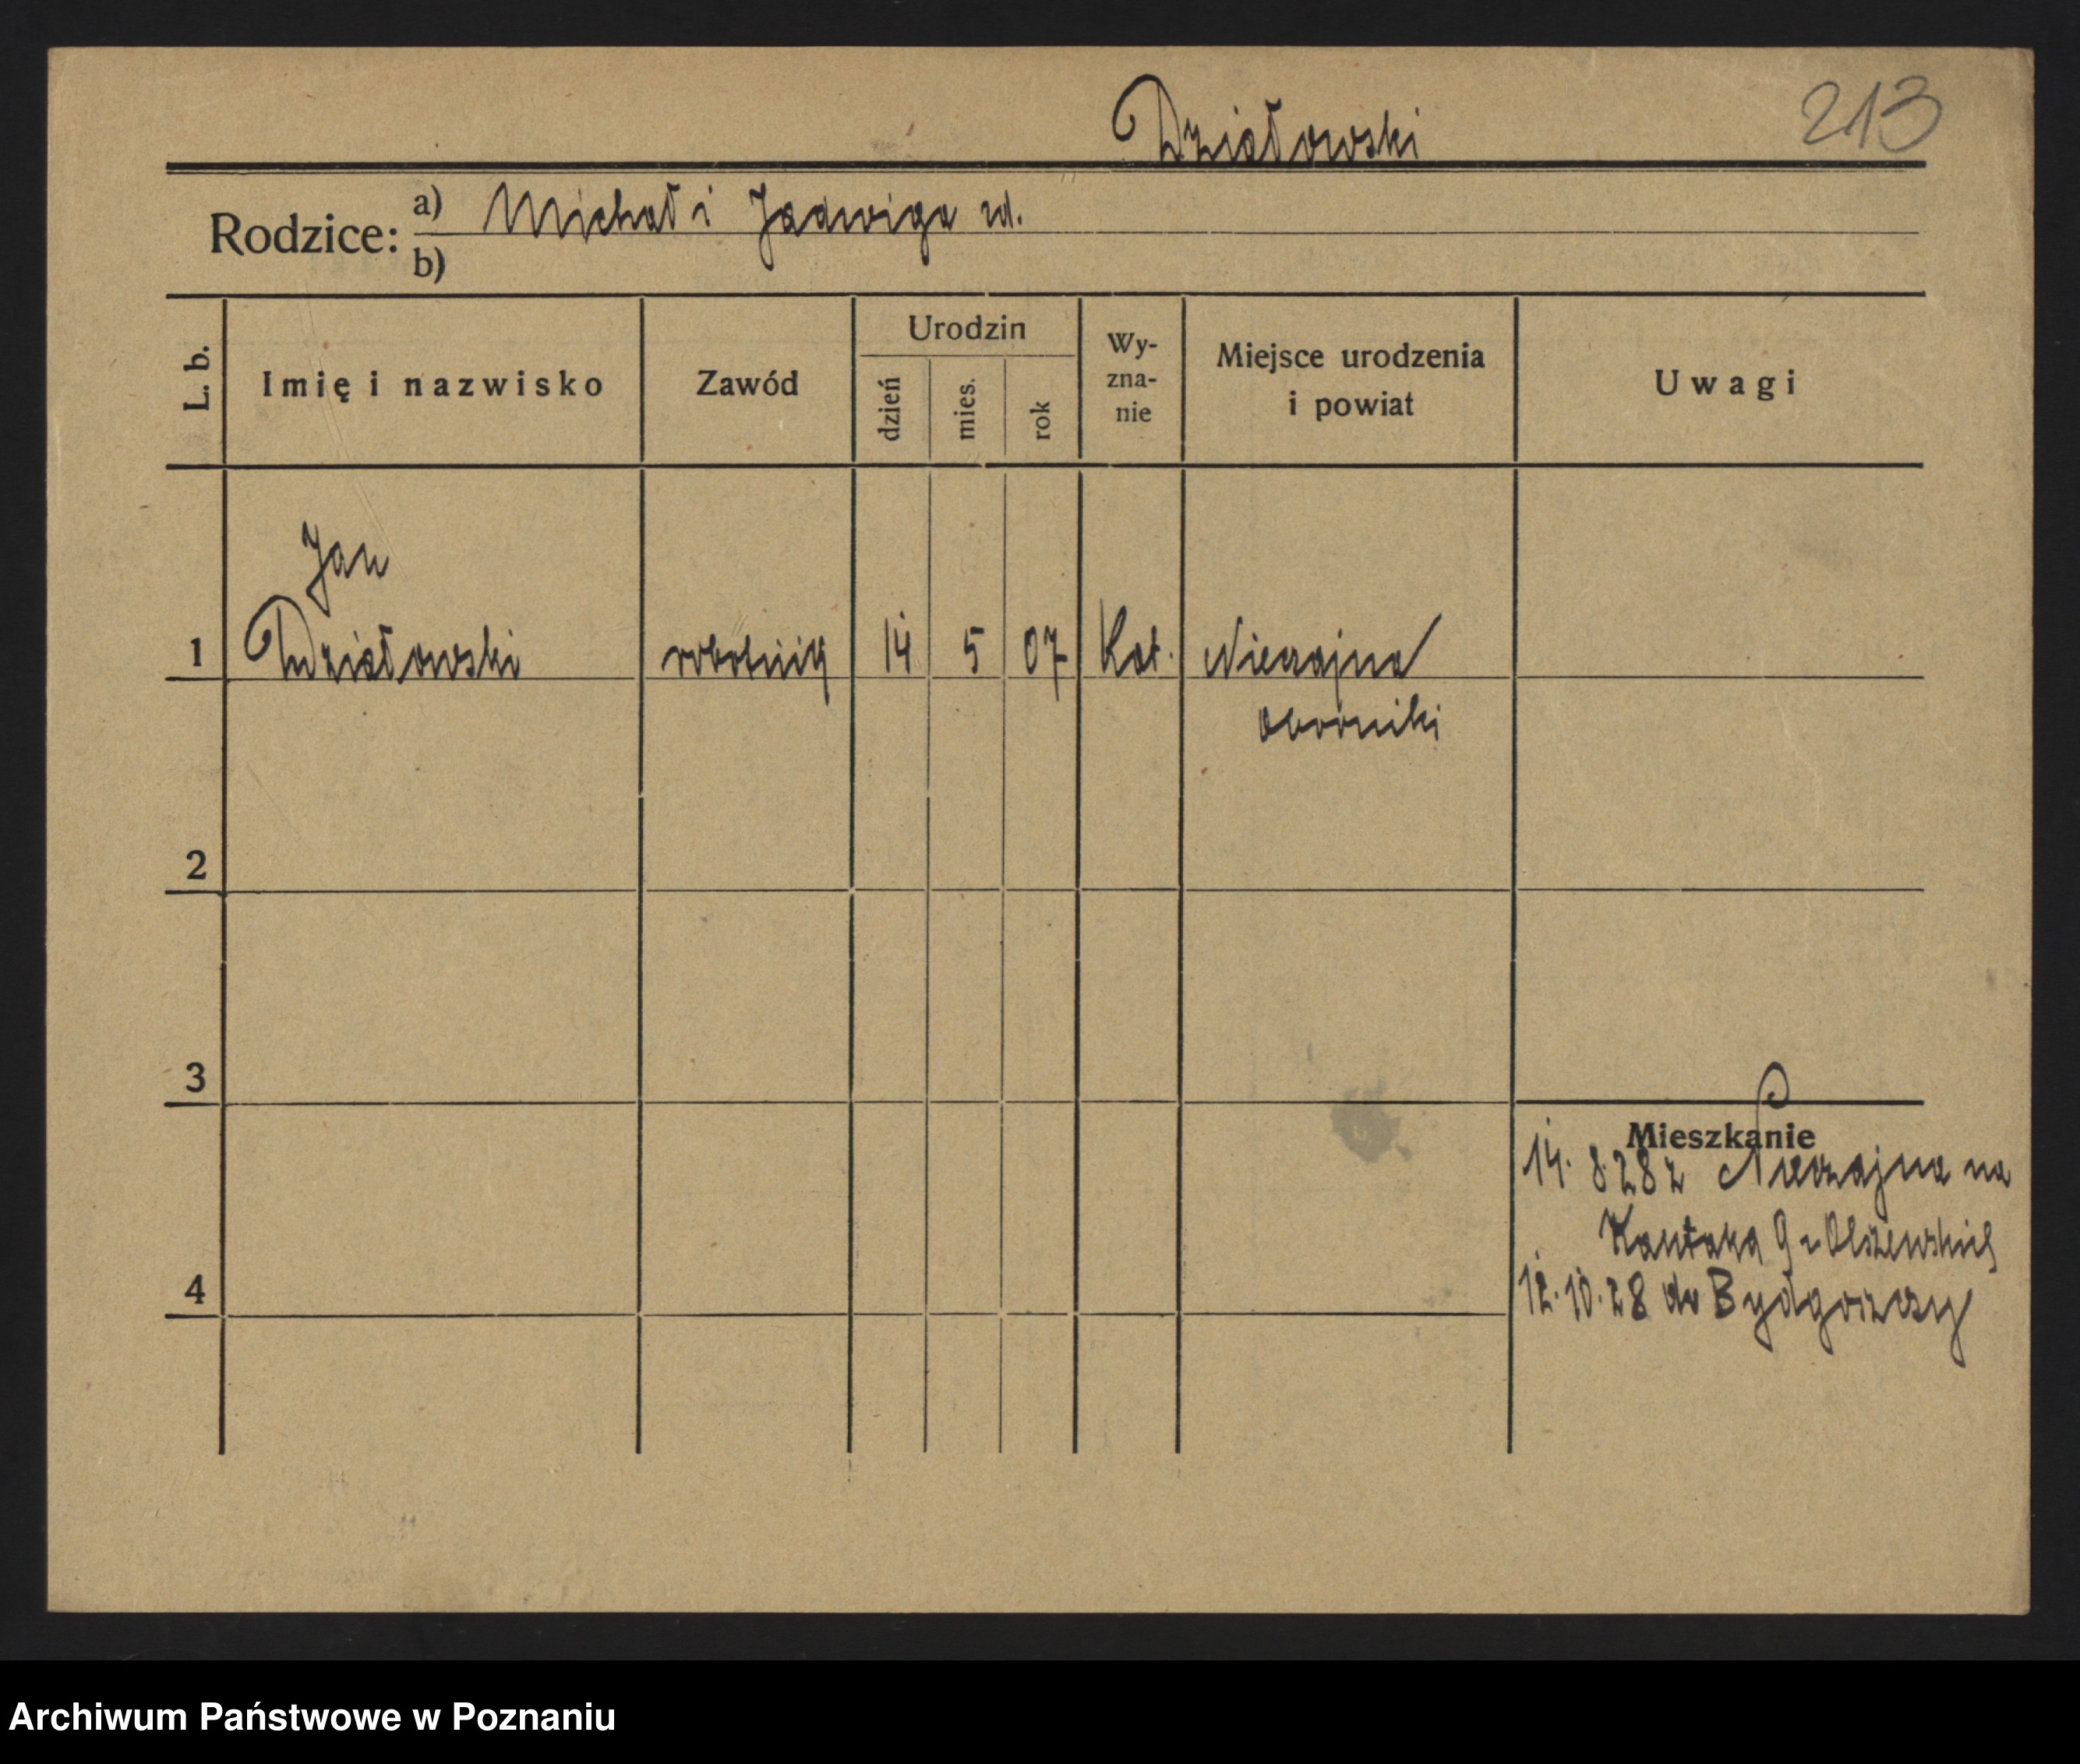 Działowski
213
Rodzice: a) Michał i Jadwiga zd.
b)
L. b.
Imię i nazwisko
Zawód
Urodzin
dzień
mies.
rok
Wy-
zna-
nie
Miejsce urodzenia
i powiat
Uwagi
Jan
1 Działowski robotnik 14 5 07 Kat. Nieczajna
Oborniki
2
3
Mieszkanie
14. 8. 28 z Nieczajna na
Kantaka 9 u Olszewskich
4
12. 10. 28 do Bydgoszczy
Archiwum Państwowe w Poznaniu